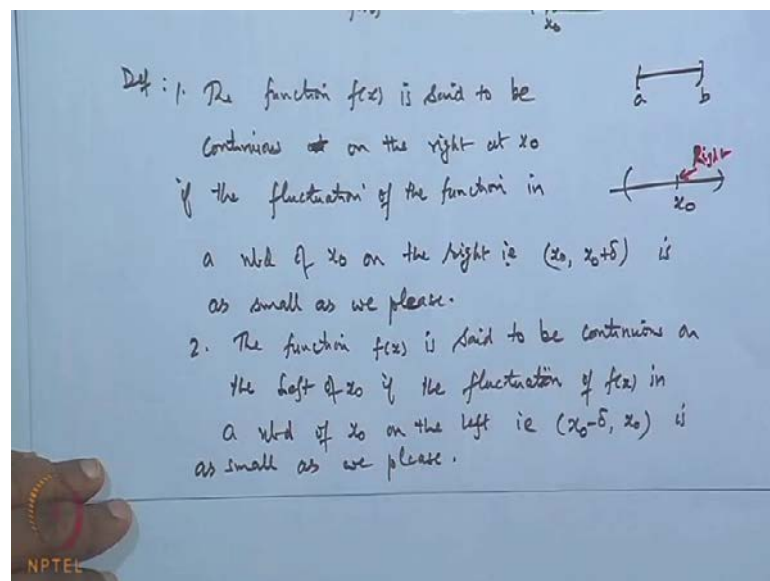 x₀
Def : 1. The function f(x) is said to be
a b
continuous on the right at x₀
Right
if the fluctuation of the function in
x₀
a nbd of x₀ on the right ie (x₀, x₀+δ) is
as small as we please.
2. The function f(x) is said to be continuous on
the left of x₀ if the fluctuation of f(x) in
a nbd of x₀ on the left ie (x₀-δ, x₀) is
as small as we please.
NPTEL